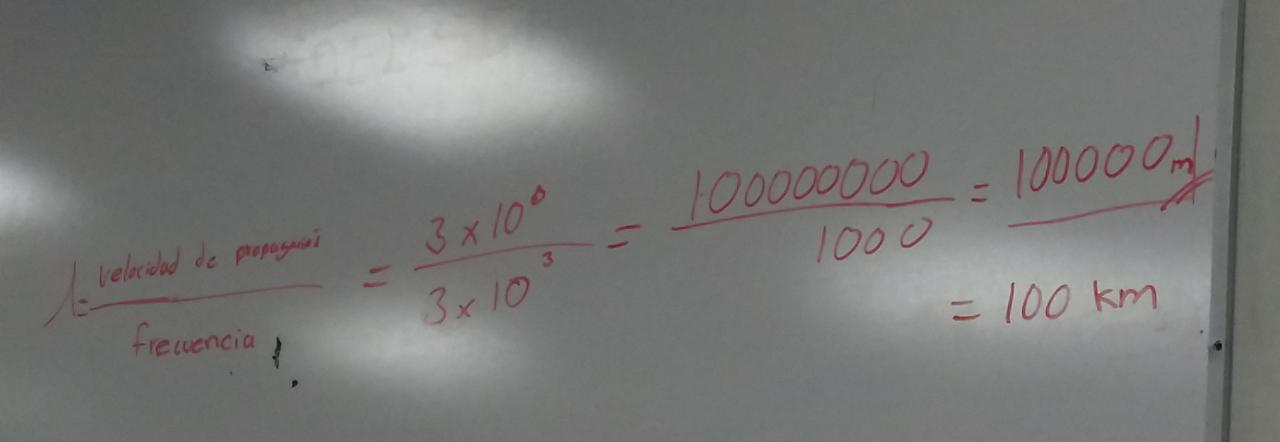 λ = velocidad de propagación / frecuencia = 3 x 10⁸ / 3 x 10³ = 100000000 / 1000 = 100000 m
= 100 km